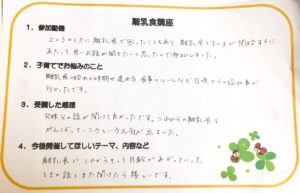 離乳食講座
1．参加動機
上の子のときに離乳食で困ったこともあり、離乳食で下の子が開始するに
あたって、食べお話が聞きたいと思ったので参加しました。
2．子育てでお悩みのこと
離乳食の始めの時期や進め方、食事のルールなど日頃からの悩み事が
3．受講した感想
お話が聞けて良かったです。これからの離乳食も
がんばっていこうという気持が出ました。
4．今後開催してほしいテーマ、内容など
離乳食で、これからもっと月齢があがっていった
ときの話もまた聞けたら嬉しいです。